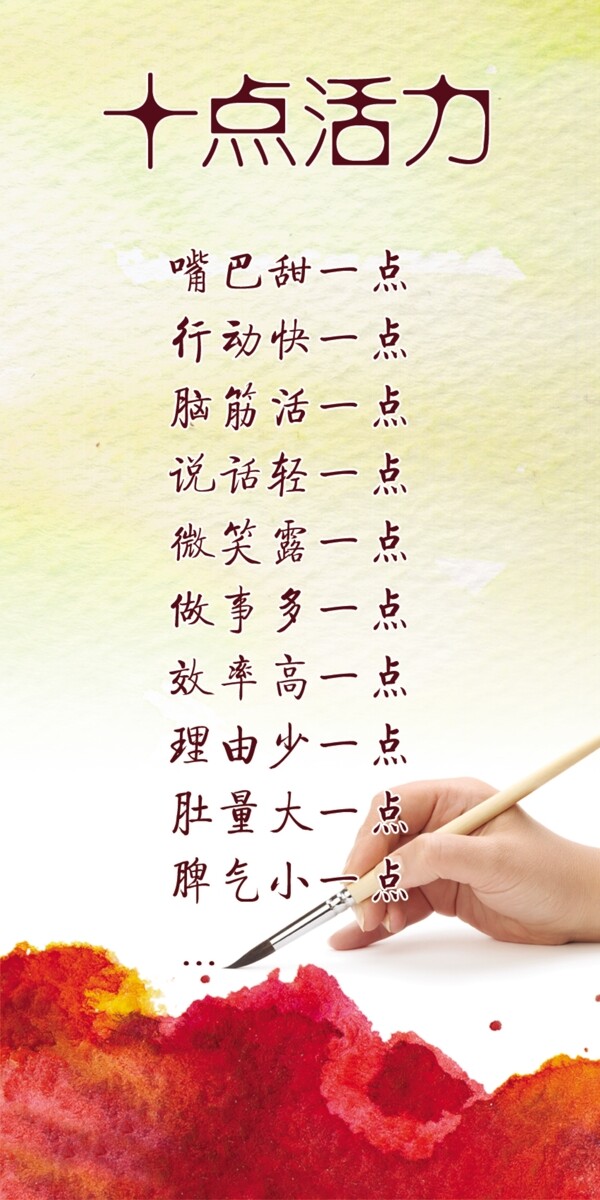 十点活力
嘴巴甜一点
行动快一点
脑筋活一点
说话轻一点
微笑露一点
做事多一点
效率高一点
理由少一点
肚量大一点
脾气小一点
...